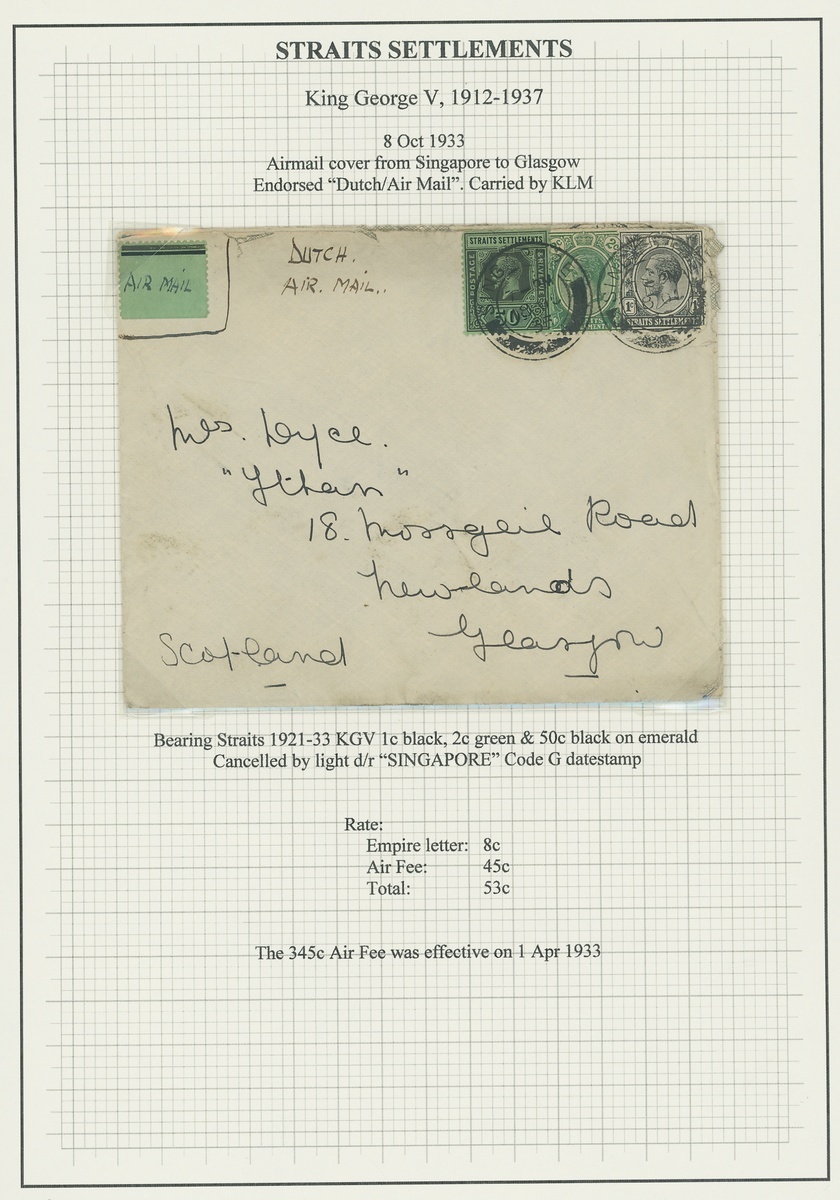 STRAITS SETTLEMENTS
King George V, 1912-1937
8 Oct 1933
Airmail cover from Singapore to Glasgow
Endorsed “Dutch/Air Mail”. Carried by KLM
AIR MAIL
DUTCH.
AIR. MAIL..
STRAITS SETTLEMENTS
POSTAGE
50
1c
STRAITS SETTLEMENTS
Mrs. Dyce.
"Ythan"
18. Mossgeil Road
Newlands
Glasgow
Scotland
Bearing Straits 1921-33 KGV 1c black, 2c green & 50c black on emerald
Cancelled by light d/r “SINGAPORE” Code G datestamp
Rate:
Empire letter: 8c
Air Fee: 45c
Total: 53c
The 345c Air Fee was effective on 1 Apr 1933